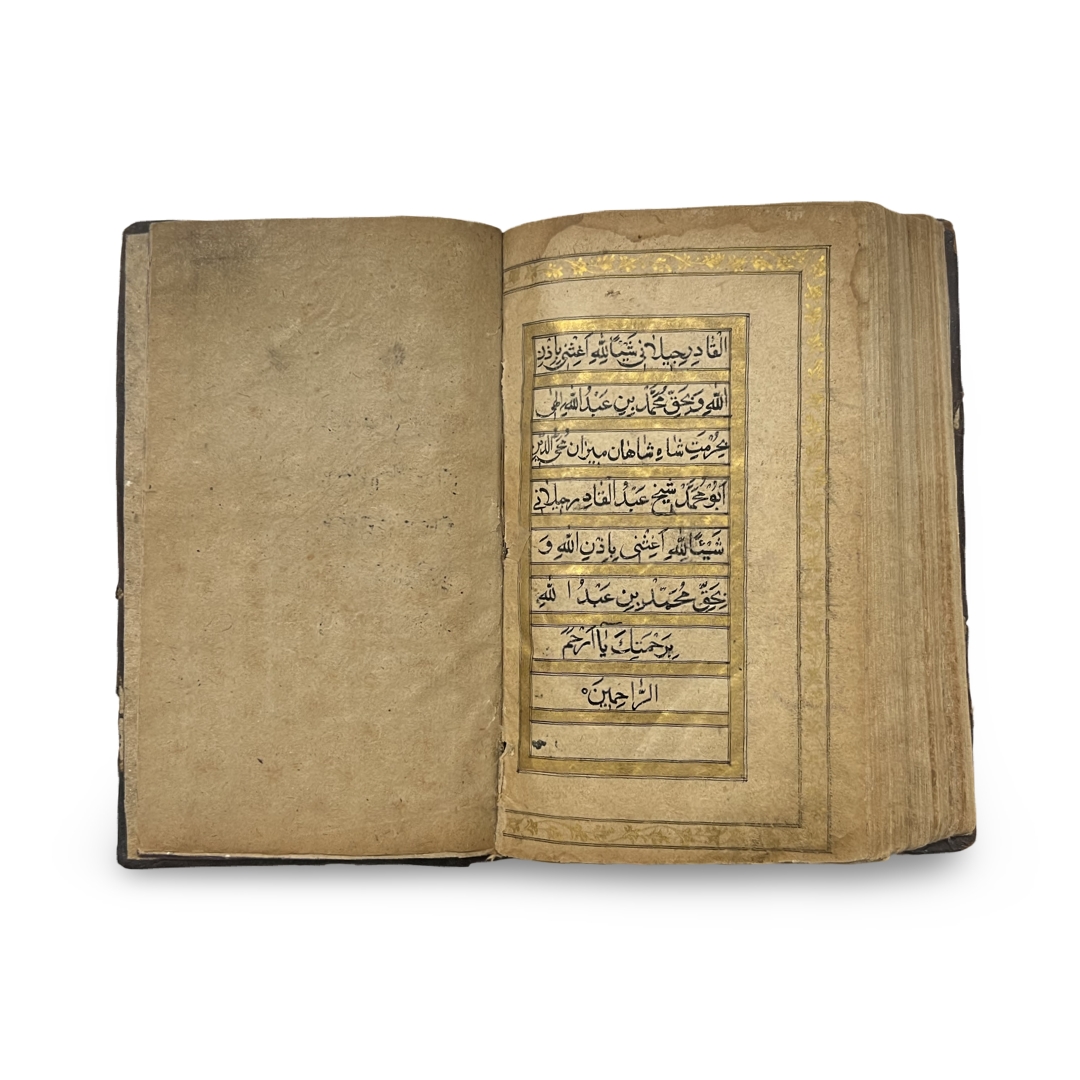 القَادِرجِيلَانِي شَيْئًا لِلّٰهِ اَغِثْنِي بِاِذْنِ
اللّٰهِ وَبِحَقِّ مُحَمَّدْ بِنِ عَبْدُ اللّٰهِ اِلٰهِي
بِحُرْمَتِ شَاهِ شَاهَان مِيرَان مُحْيُ الدِّين
اَبُوْ مُحَمَّدْ شَيْخ عَبْدُ القَادِر جِيلَانِي
شَيْئًا لِلّٰهِ اَغِثْنِي بِاِذْنِ اللّٰهِ وَ
بِحَقِّ مُحَمَّدْ بِنِ عَبْدُ اللّٰهِ
بِرَحْمَتِكَ يَا اَرْحَمَ
الرَّاحِمِينَ ه